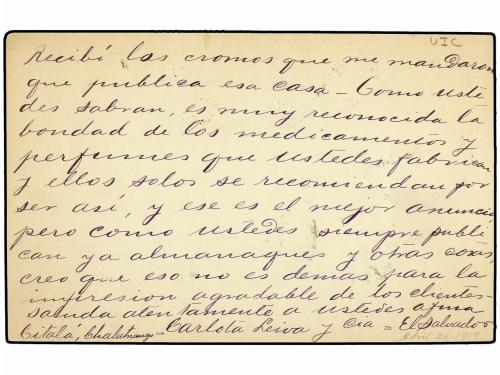 UIC
Recibí las cromos que me mandaron
que publica esa casa - Como uste
des sabran, es muy reconocida la
bondad de los medicamentos y
perfumes que ustedes fabrican
y ellos solos se recomiendan por
ser así, y ese es el mejor anuncio
pero como ustedes siempre publi
can ya almanaques y otras cosas,
creo que eso no es demas, para la
impresion agradable de los clientes -
saluda atentamente a ustedes
Citalá, Chalatenango = Carlota Leiva y Cia = El Salvador
Abril 26-1919